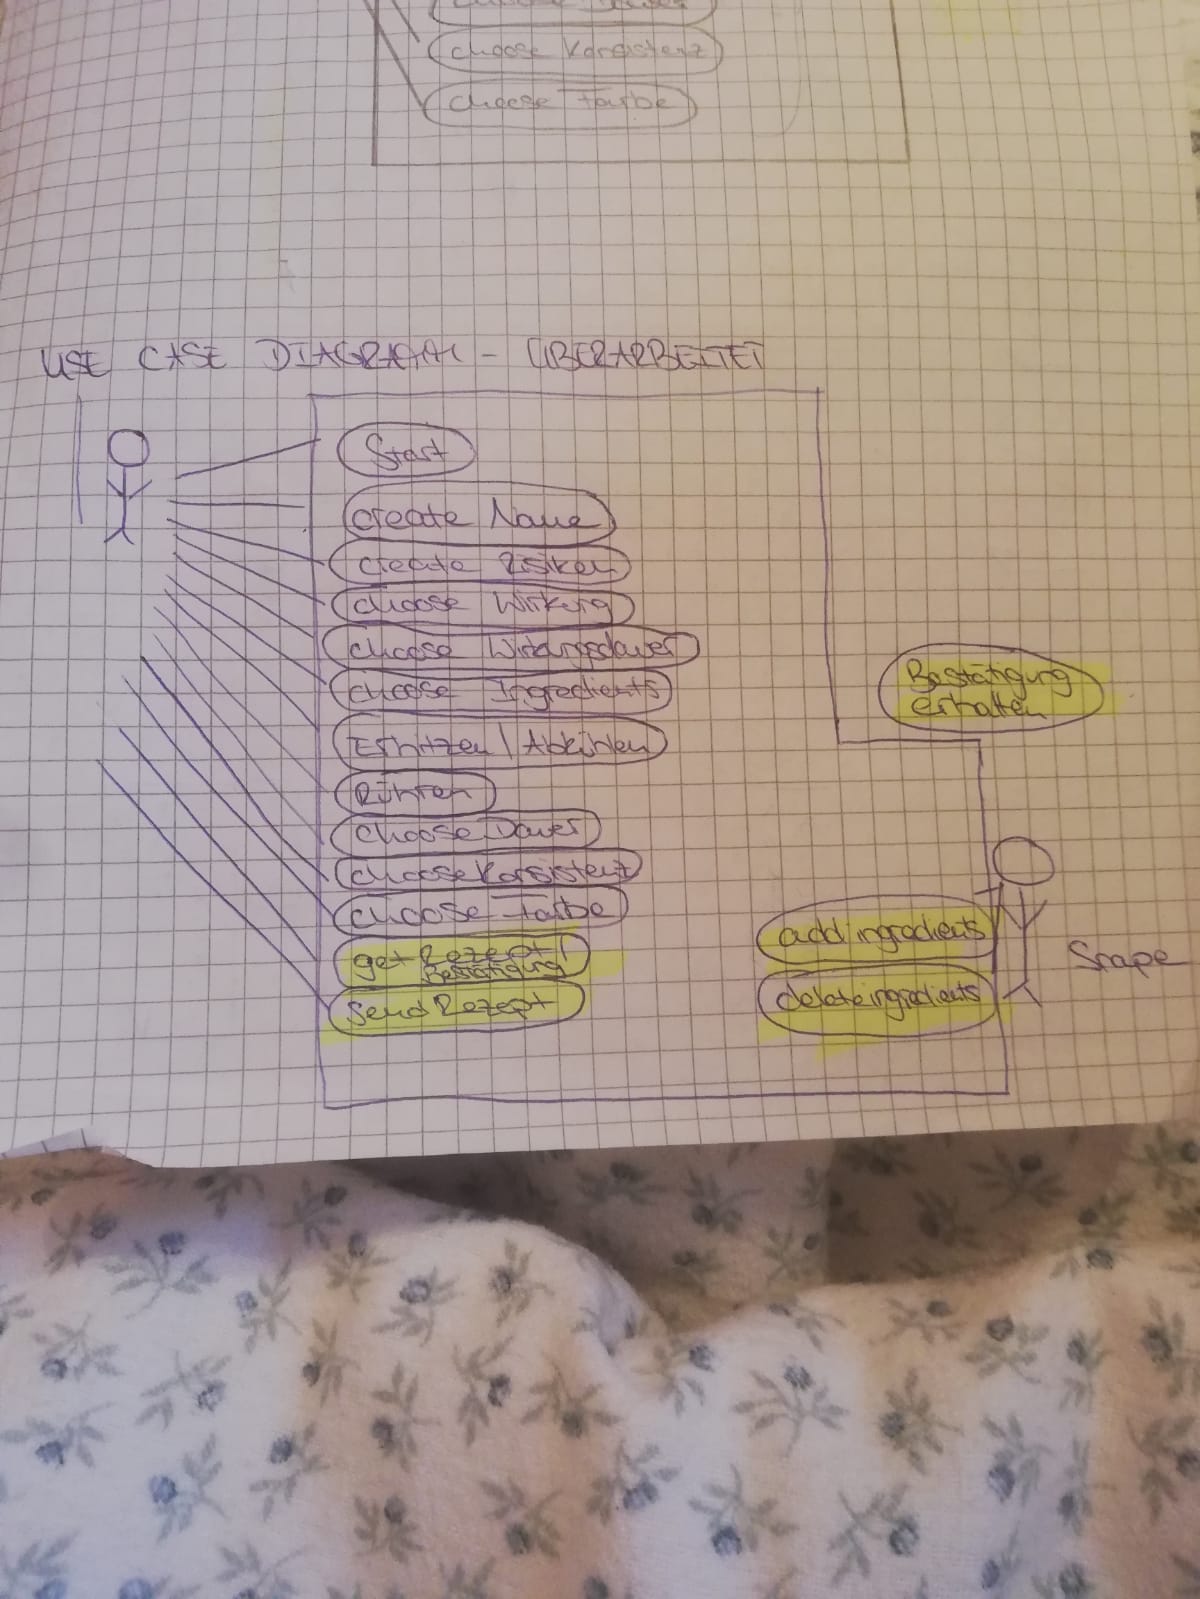 choose Konsistenz
choose Farbe
USE CASE DIAGRAM - ÜBERARBEITET
Start
create Name
create Risiken
choose Wirkung
choose Wirkungsdauer
choose Ingredients
Erhitzen / Abkühlen
Rühren
choose Dauer
choose Konsistenz
choose Farbe
get Rezept /
Bestätigung
send Rezept
Bestätigung
erhalten
add ingredients
delete ingredients
Snape